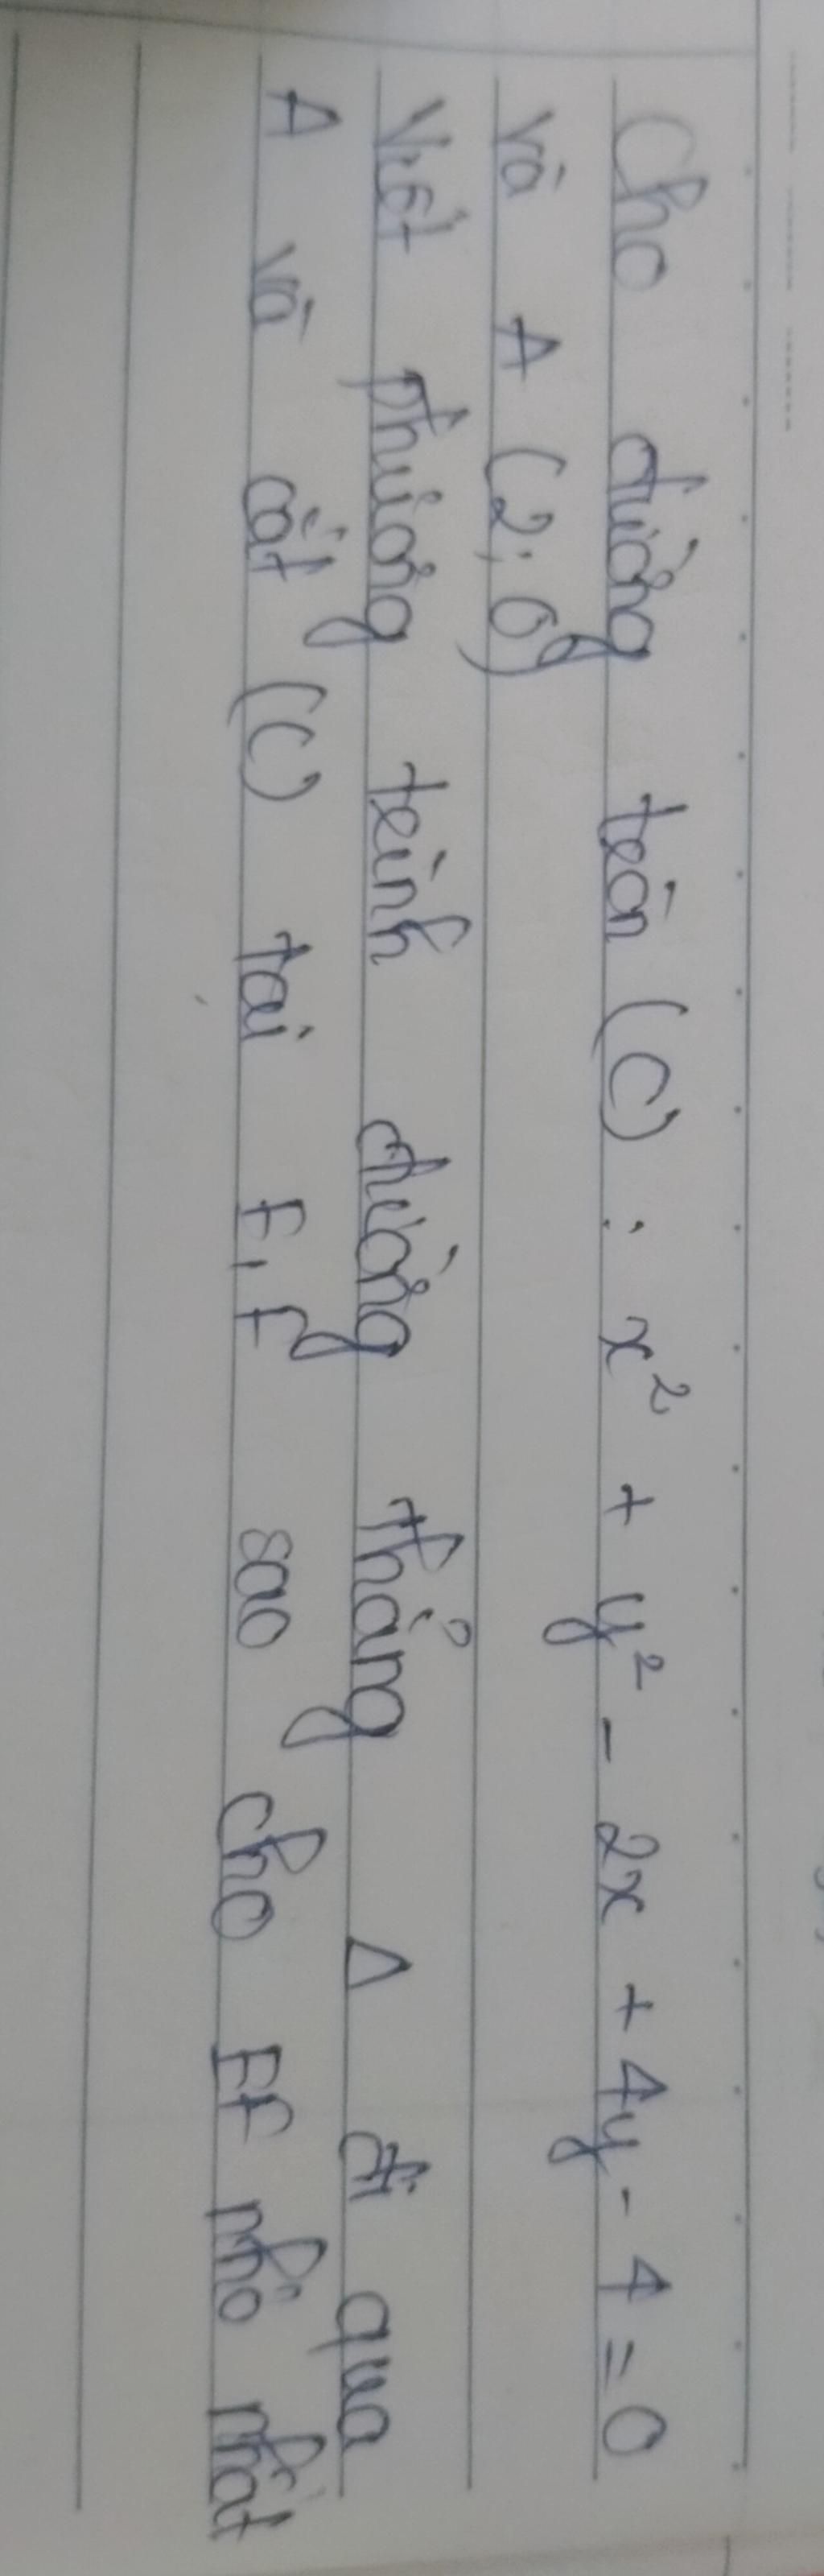 Cho đường tròn (C) : x² + y² - 2x + 4y - 4 = 0
và A (2; 0)
Viết phương trình đường thẳng Δ đi qua
A và cắt (C) tại E, F sao cho EF nhỏ nhất